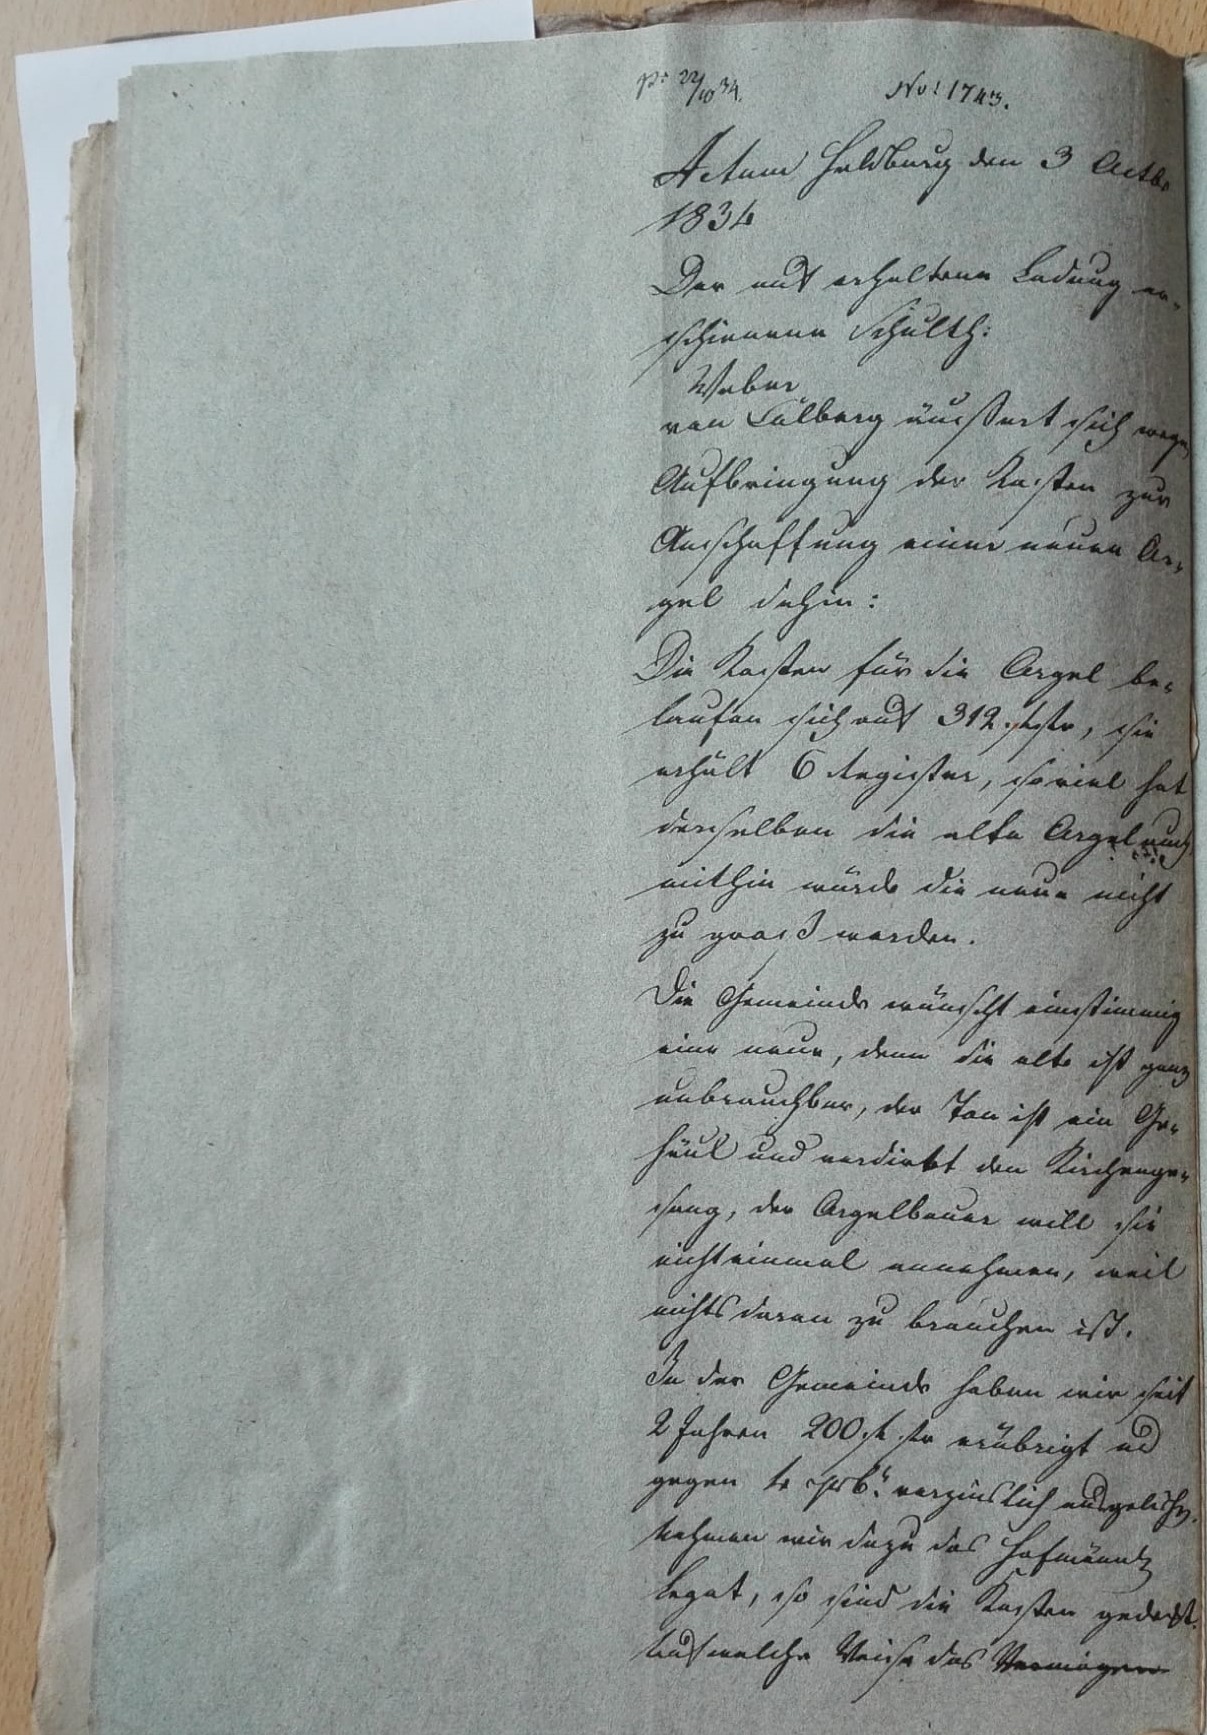 pr 22/10 34. No: 1743.
Actum Heldburg den 3 Octbr
1834
Der auf erhaltene Ladung er-
schienene Schulth:
Weber
von Käßlitz äussert sich wegen
Aufbringung der Kosten zur
Anschaffung einer neuen Or-
gel dahin:
Die Kosten für die Orgel be-
laufen sich auf 312 f. , sie
erhält 6 Register, soviel hat
derselben die alte Orgel auch,
mithin würde die neue nicht
zu groß werden.
Die Gemeinde wünscht einstimmig
eine neue, denn die alte ist ganz
unbrauchbar, der Ton ist ein Ge-
häul und verdirbt den Kirchenge-
sang, der Orgelbauer will sie
nicht einmal annehmen, weil
nichts daran zu brauchen ist.
In der Gemeinde haben wir seit
2 Jahren 200 f. erübrigt und
gegen 4 verzinslich ausgeliehen.
Nehmen wir dazu das Hofmännl.
Legat, so sind die Kosten gedeckt.
Auf welche Weise das Vermögen